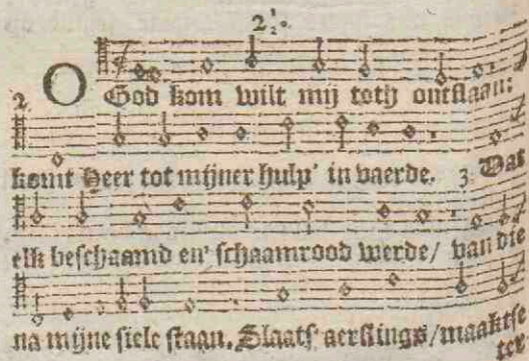 2 1/2.
O God kom wilt mij toth ontslaan:
2. komt Heer tot mijner hulp' in vaerde. 3 Dat
elk beschaamd en' schaamrood werde/ van die
na mijne siele staan. Slaats' aerslings/ maaktse